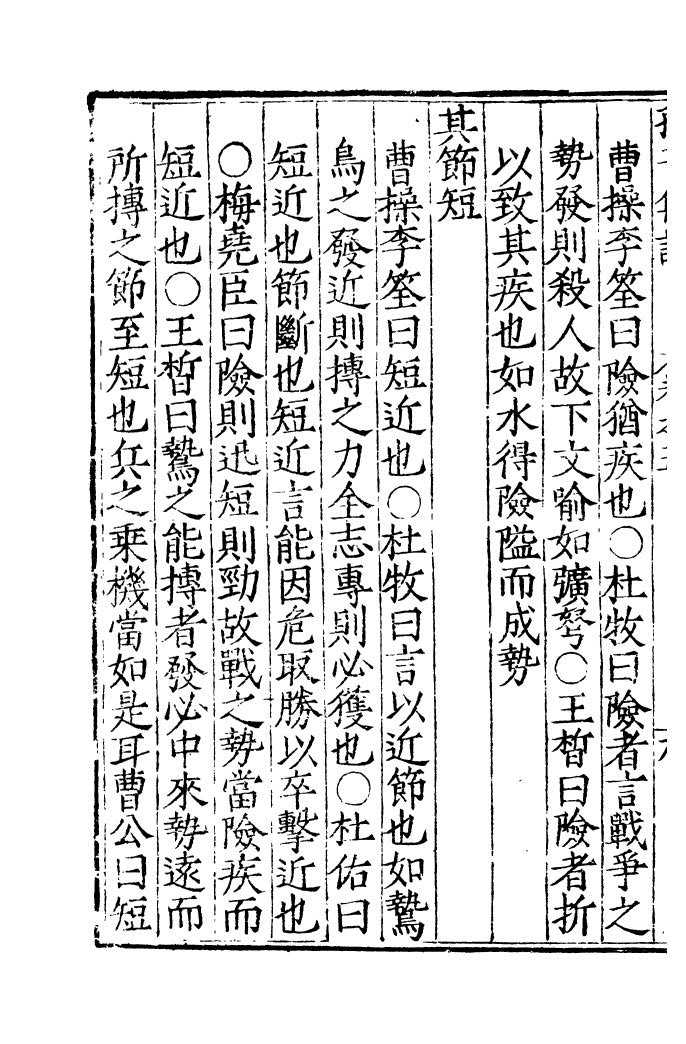 曹操李筌曰險猶疾也○杜牧曰險者言戰爭之
勢發則殺人故下文喻如彍弩○王晳曰險者折
以致其疾也如水得險隘而成勢
其節短
曹操李筌曰短近也○杜牧曰言以近節也如鷙
鳥之發近則搏之力全志專則必獲也○杜佑曰
短近也節斷也短近言能因危取勝以卒擊近也
○梅堯臣曰險則迅短則勁故戰之勢當險疾而
短近也○王晳曰鷙之能搏者發必中來勢遠而
所搏之節至短也兵之乗機當如是耳曹公曰短